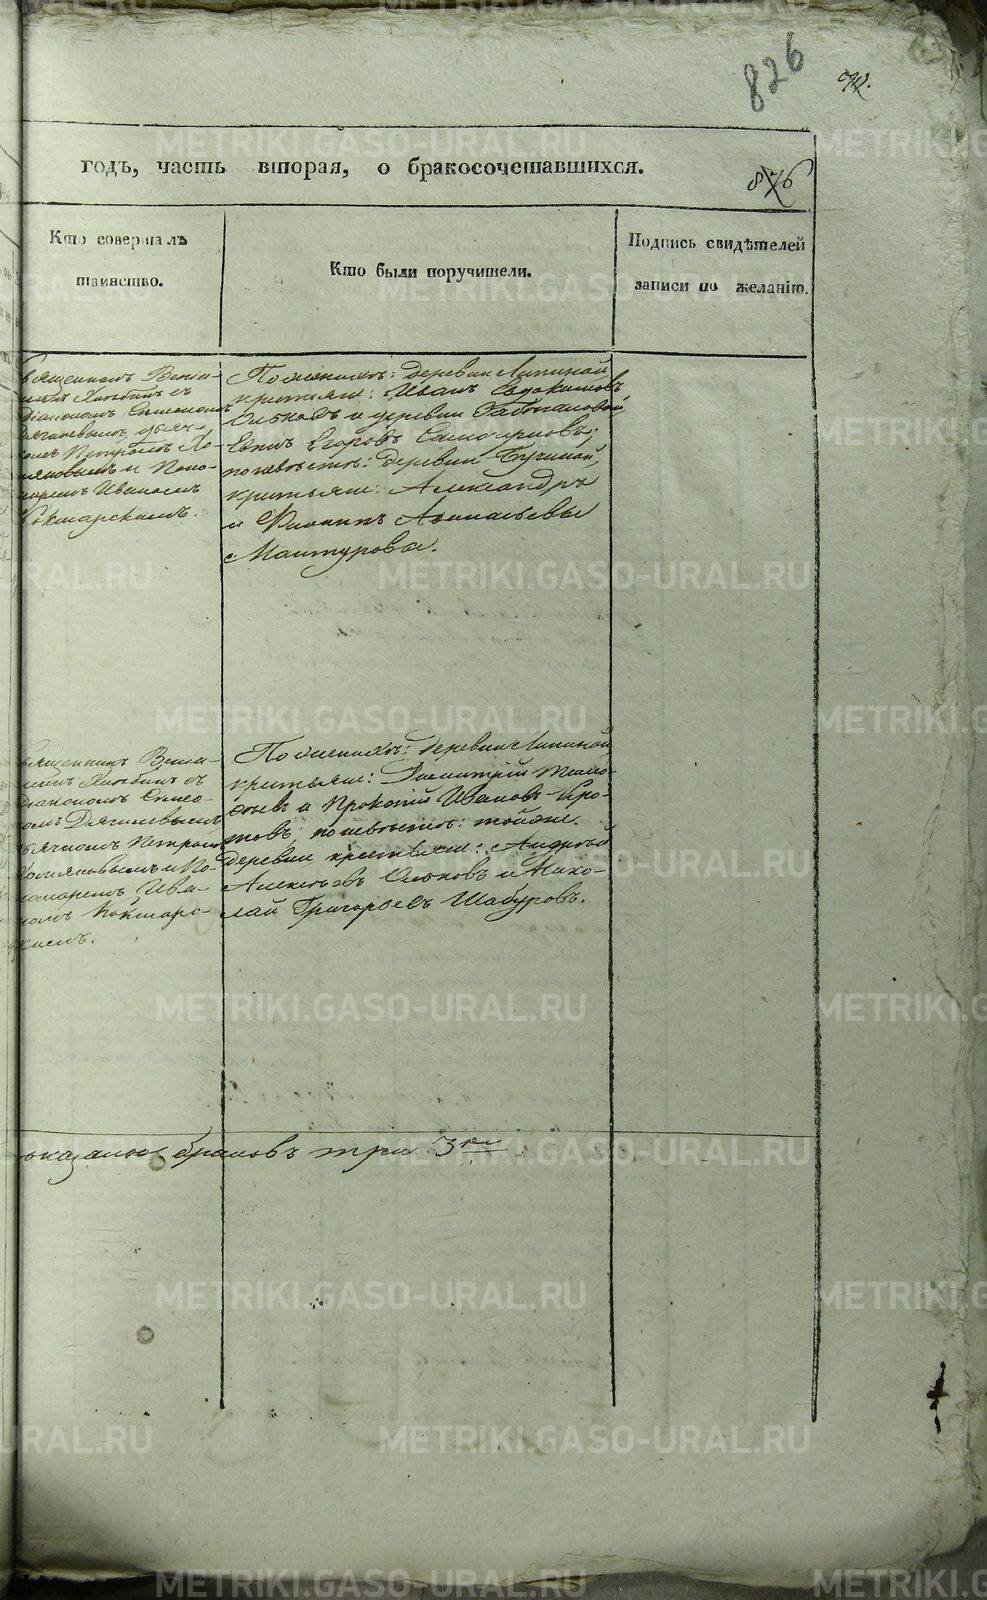 826
годъ, часть вторая, о бракосочетавшихся.
876
Кто совершалъ
таинство.
Кто были поручители.
Подпись свидѣтелей
записи по желанію.
Священникъ Веніа-
минъ съ
Діакономъ Симеономъ
Дягилевымъ дьяч-
комъ Петромъ Хо-
мяковымъ и Поно-
маремъ Иваномъ
Кокшарскимъ.
По женихѣ: деревни Липиной
крестьяне: Иванъ Евдокимовъ
и деревни
Егоровъ
по невѣстѣ: деревни
крестьяне: Александръ
и Филиппъ
Мантуровы.
Священникъ Веніа-
минъ съ
Діакономъ Симео-
номъ Дягилевымъ
дьячкомъ Петромъ
Хомяковымъ и По-
номаремъ Ива-
номъ Кокшаро-
скимъ.
По женихѣ: деревни Липиной
крестьяне: Димитрій Тимо-
ѳеевъ и Прокопій Ивановъ Кро-
товъ: по невѣстѣ: тойже
деревни крестьяне: Андрей
Алексѣевъ и Нико-
лай Григорьевъ Шабуровъ.
оказалось браковъ три 3 ри
METRIKI.GASO-URAL.RU